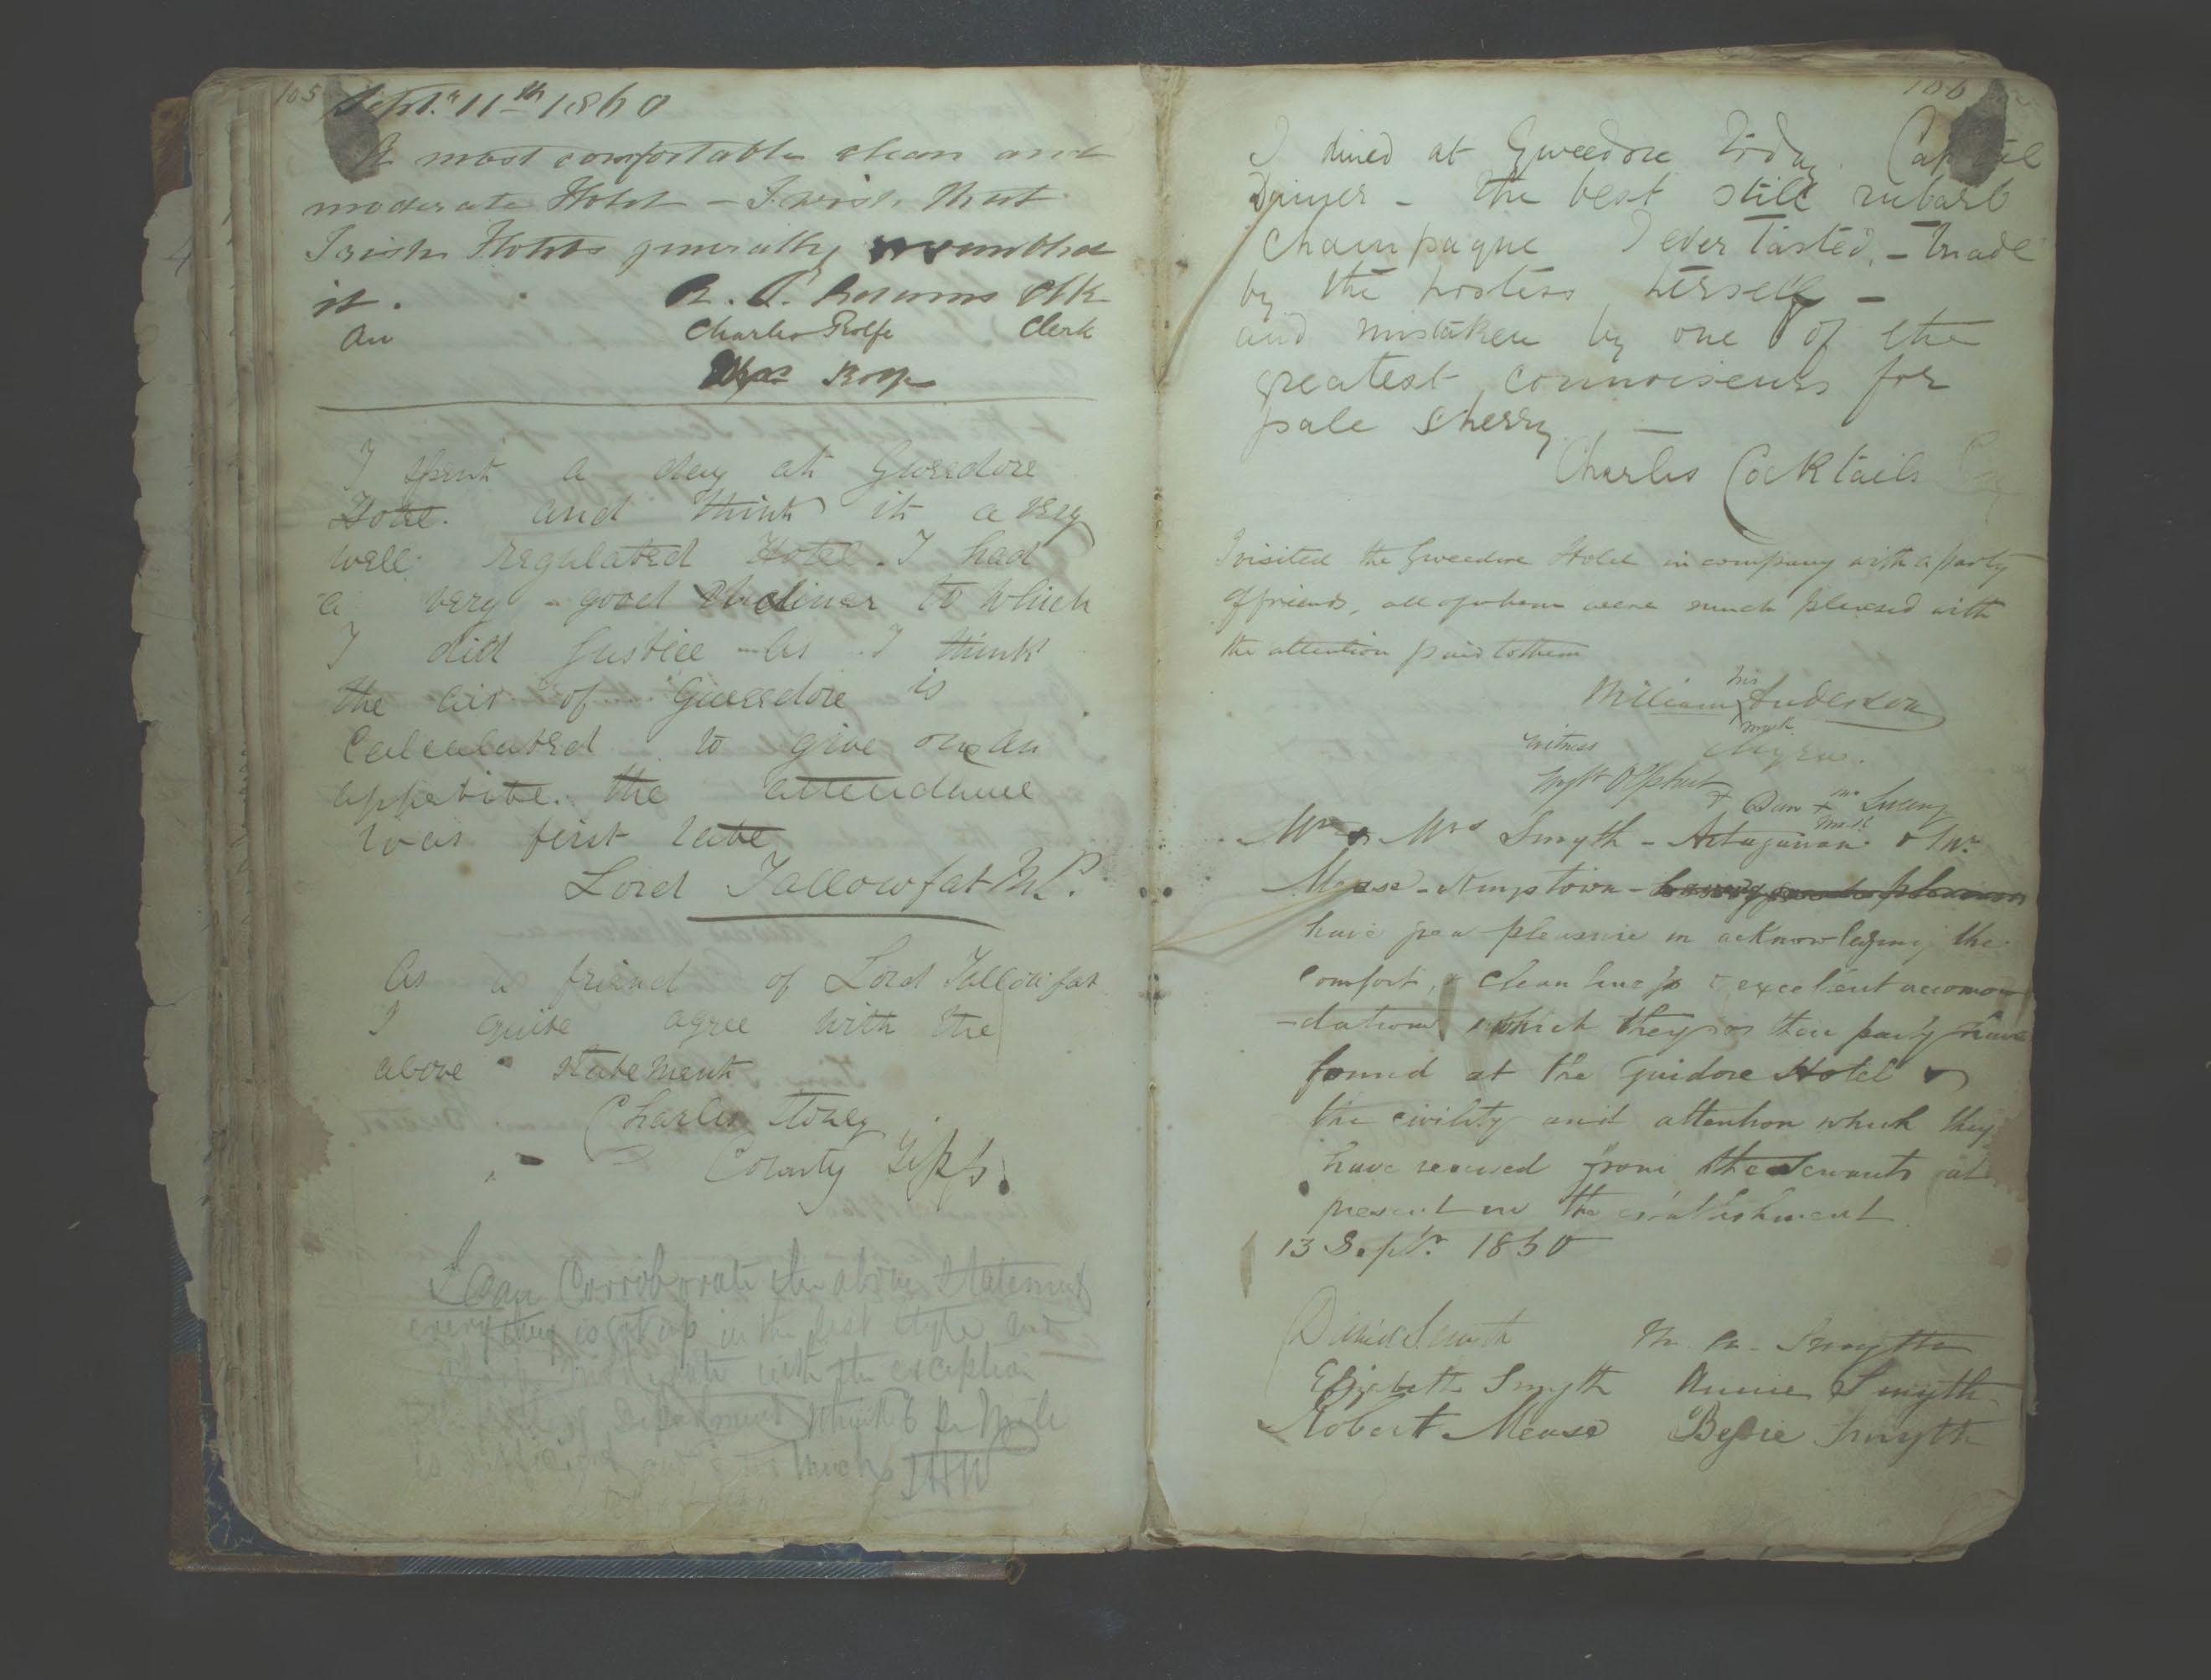 105
Septr. 11th 1860
A most comfortable clean and
moderate Hotel - I wish that
Irish Hotels generally resembled
it.
Charles Rolfe Clerk
I spent a day at Gweedore
Hotel. and think it a very
well regulated Hotel. I had
a very good dinner to which
I did justice as I think
the air of Gweedore is
calculated to give one an
appetite. the attendance
was first rate
Lord Tallowfat M.P.
As a friend of Lord Tallowfat
I quite agree with the
above statement
Charles Stoney
County Tipp.
I can Corroborate the above Statement
everything is got up in the best style and
moderate with the exception
6 pr Mile
is sufficient and too much JHW
106
I dined at Gweedore Today. Capital
Dinner - the best still rubarb
Champagne I ever Tasted, - Made
by the hostess herself -
and mistaken by one of the
greatest connoiseurs for
pale Sherry
Charles Cocktails
I visited the Gweedore Hotel in company with a party
of friends, all of whom were much pleased with
the attention paid to them
his
William X Anderson
mark
Witness
Mr & Mrs Smyth - & Mr
Mease - Kingstown -
have grea pleasure in acknowledging the
comfort, & cleanliness & excellent accomo
-dation which they or their party have
found at the Guidore Hotel &
the civility and attention which they
have received from the Servants at
present in the establishment
13 Septr. 1860
Daniel Smyth M. A. Smyth
Elizabeth Smyth Annie Smyth
Robert Mease Bessie Smyth